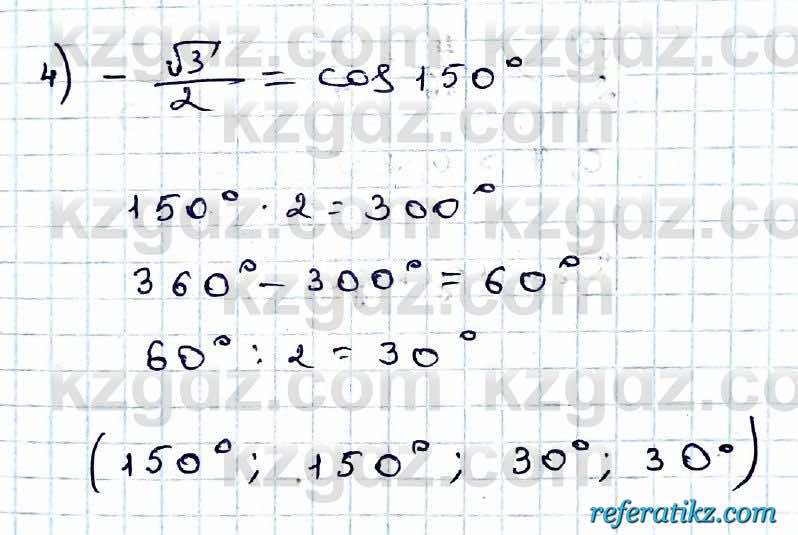 4) - √3/2 = cos 150°
150° · 2 = 300°
360° - 300° = 60°
60° : 2 = 30°
(150°; 150°; 30°; 30°)
kzgdz.com
referatikz.com